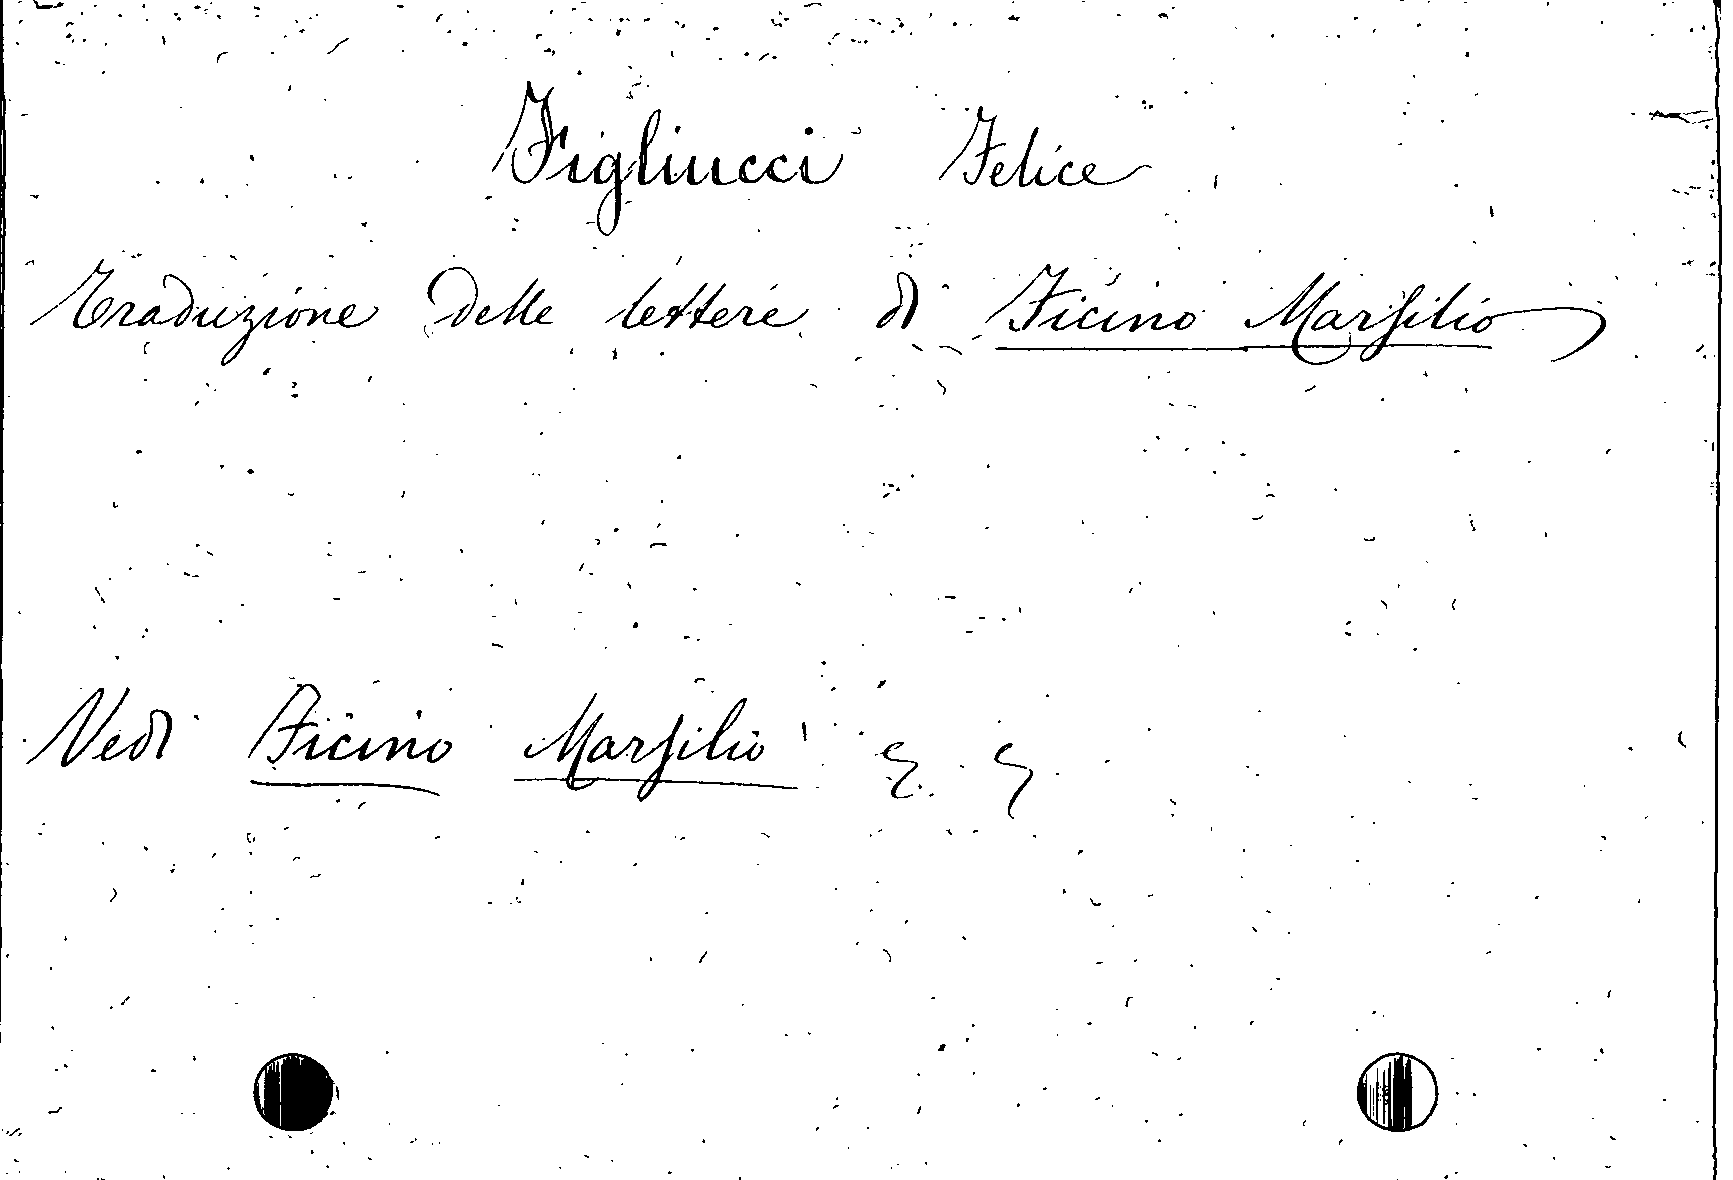 Figliucci Felice
Traduzione delle lettere di Ficino Marsilio
Vedi Ficino Marsilio